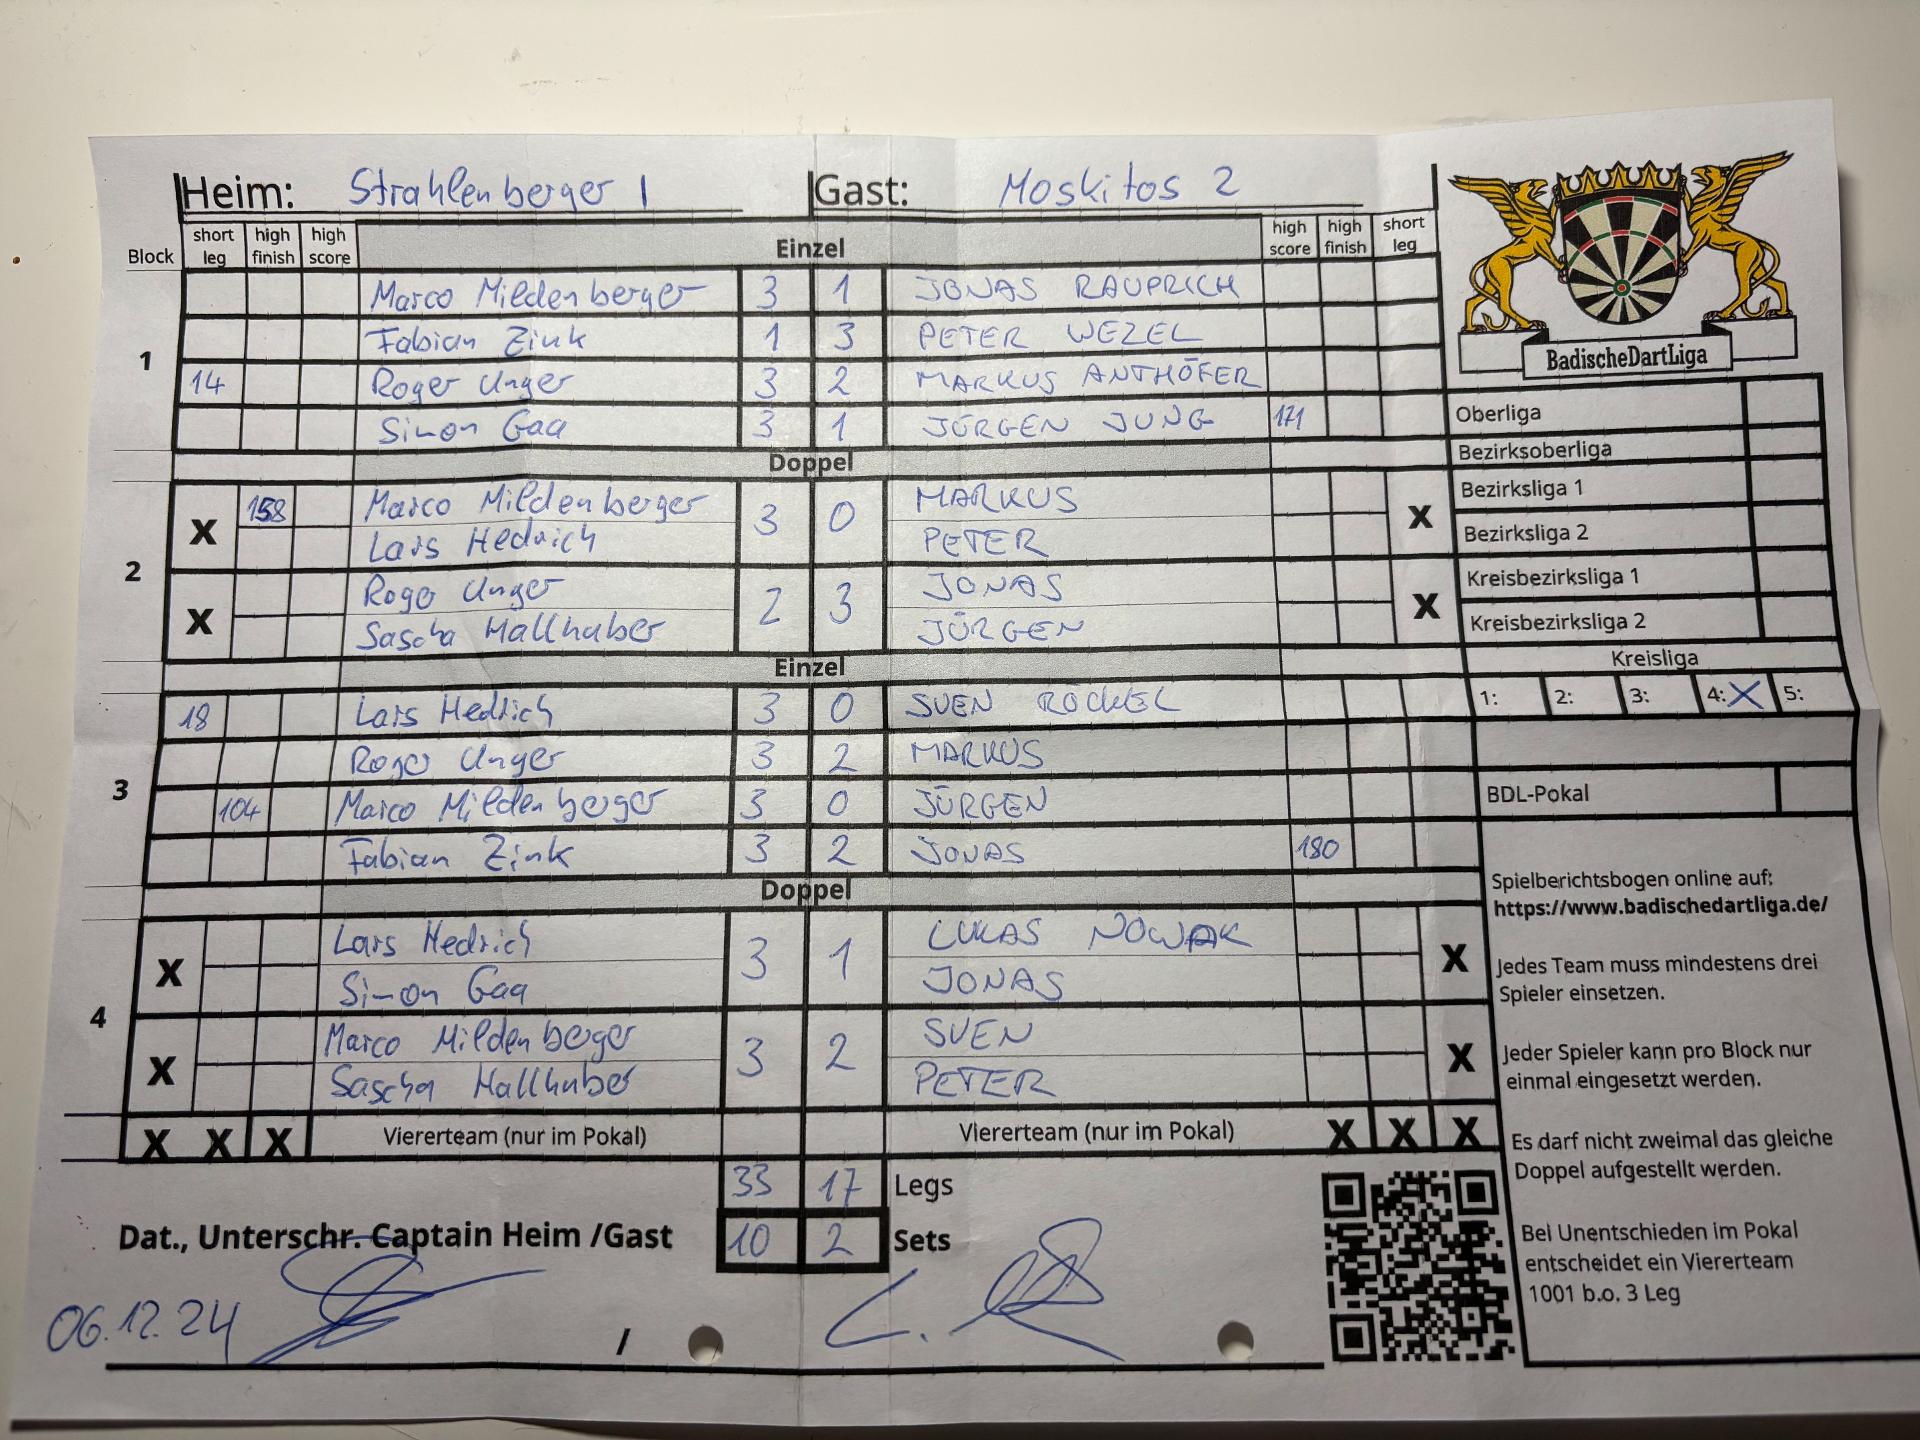 Heim: Strahlenberger 1 Gast: Moskitos 2
Block short leg high finish high score Einzel high score high finish short leg
1
Marco Mildenberger 3 1 JONAS RAUPRICH
Fabian Zink 1 3 PETER WEZEL
14 Roger Unger 3 2 MARKUS ANTHÖFER
Simon Gaa 3 1 JÜRGEN JUNG 171
Doppel
2
X 158 Marco Mildenberger 3 0 MARKUS X
Lars Hedrich PETER
X Roger Unger 2 3 JONAS X
Sascha Hallhuber JÜRGEN
Einzel
3
18 Lars Hedrich 3 0 SVEN RÖCKEL
Roger Unger 3 2 MARKUS
104 Marco Mildenberger 3 0 JÜRGEN
Fabian Zink 3 2 JONAS 180
Doppel
4
X Lars Hedrich 3 1 LUKAS NOWAK X
Simon Gaa JONAS
X Marco Mildenberger 3 2 SVEN X
Sascha Hallhuber PETER
X X X Viererteam (nur im Pokal) Viererteam (nur im Pokal) X X X
33 17 Legs
Dat., Unterschr. Captain Heim /Gast 10 2 Sets
06.12.24 /
BadischeDartLiga
Oberliga
Bezirksoberliga
Bezirksliga 1
Bezirksliga 2
Kreisbezirksliga 1
Kreisbezirksliga 2
Kreisliga
1: 2: 3: 4: X 5:
BDL-Pokal
Spielberichtsbogen online auf:
https://www.badischedartliga.de/
Jedes Team muss mindestens drei
Spieler einsetzen.
Jeder Spieler kann pro Block nur
einmal eingesetzt werden.
Es darf nicht zweimal das gleiche
Doppel aufgestellt werden.
Bei Unentschieden im Pokal
entscheidet ein Viererteam
1001 b.o. 3 Leg